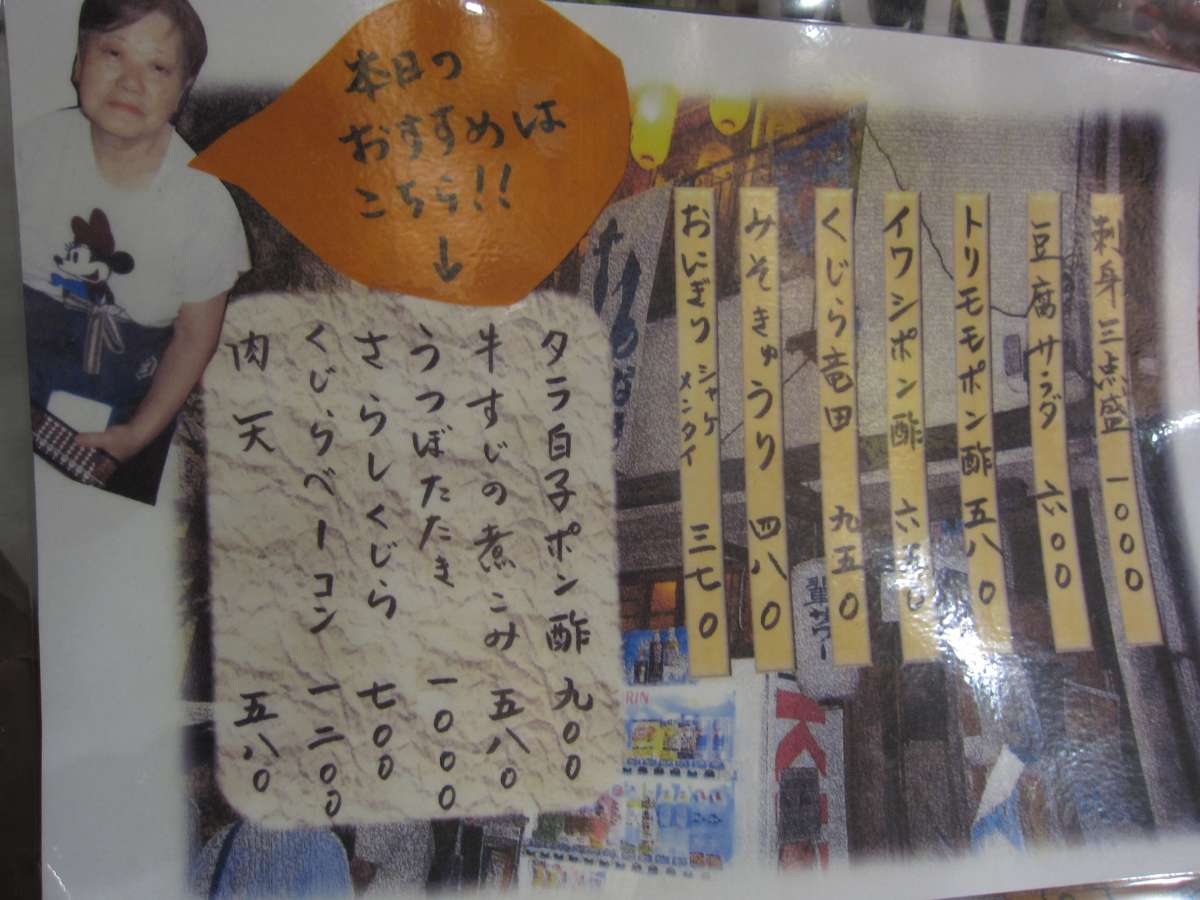 本日の
おすすめは
こちら!!
↓
刺身三点盛 一000
豆腐サラダ 六00
トリモモポン酢 五八0
イワシポン酢 六五0
くじら竜田 九五0
みそきゅうり 四八0
おにぎり シャケ メンタイ 三七0
タラ白子ポン酢 九00
牛すじの煮こみ 五八0
うつぼたたき 一000
さらしくじら 七00
くじらベーコン 一二00
肉天 五八0